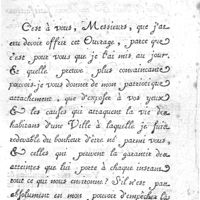 C'est à vous, Messieurs, que j'ai
cru devoir offrir cet Ouvrage, parce que
c'est pour vous que je l'ai mis au jour.
Et quelle preuve plus convaincante
pouvois-je vous donner de mon patriotique
attachement, que d'exposer à vos yeux
& les causes qui attaquent la vie des
habitans d'une Ville à laquelle je suis
redevable du bonheur d'être né parmi vous
& celles qui peuvent la garantir des
atteintes que lui porte à chaque instant
tout ce qui nous environne? S'il n'est pas
absolument en mon pouvoir d'empêcher la